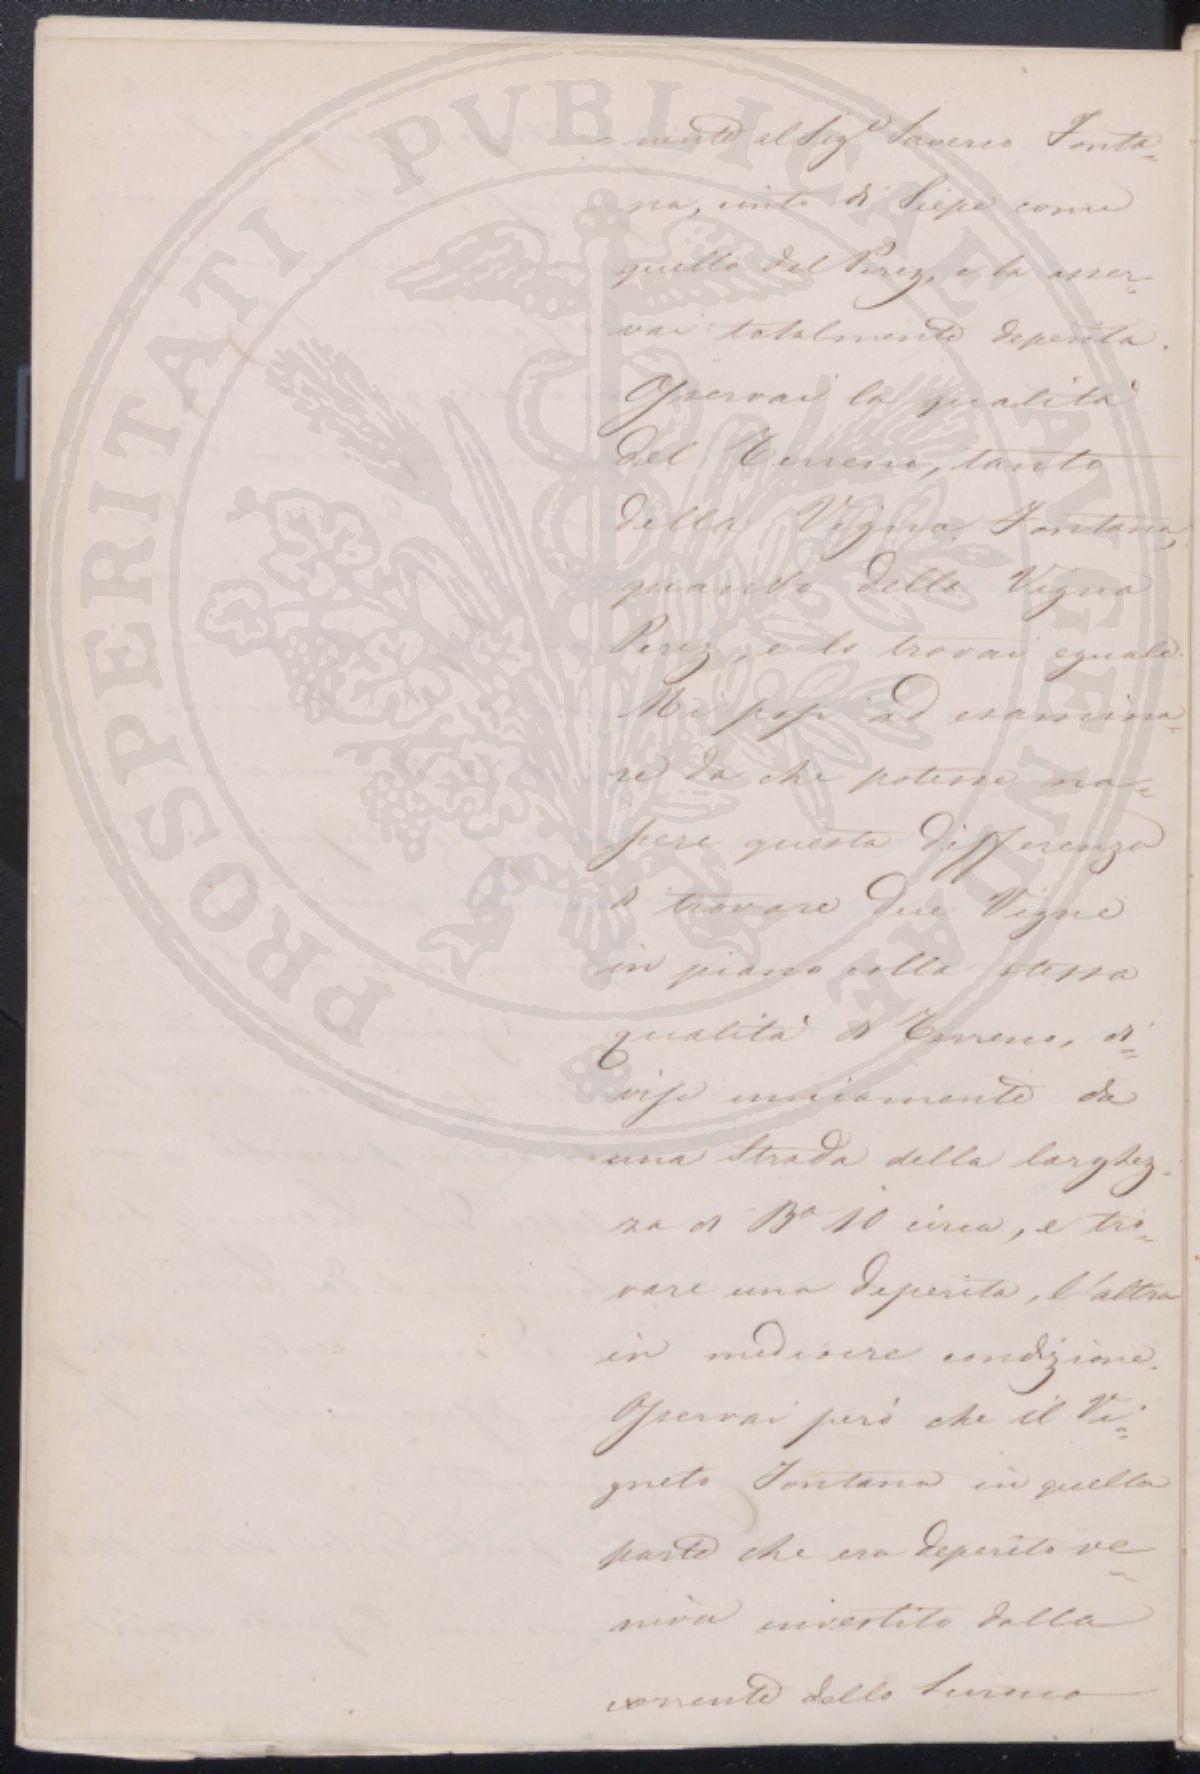 PROSPERITATI PVBLICAE AVGENDAE
= nente al Sig.r Saverio Fonta=
na, cinto di Siepe come
quello del Perez, e la osser=
vai totalmente deperita.
Osservai la qualità
del Terreno, tanto
della Vigna Fontana,
quanto della Vigna
Perez, e lo trovai eguale.
Mi posi ad esamina=
re da che potesse na=
scere questa differenza
di trovare due Vigne
in piano colla stessa
qualità di Terreno, di=
vise unicamente da
una Strada della larghez=
za di Ba 10 circa, e tro=
vare una deperita, l'altra
in mediocre condizione.
Osservai però che il Vi=
gneto Fontana in quella
parte che era deperito ve=
niva investito dalla
corrente dello